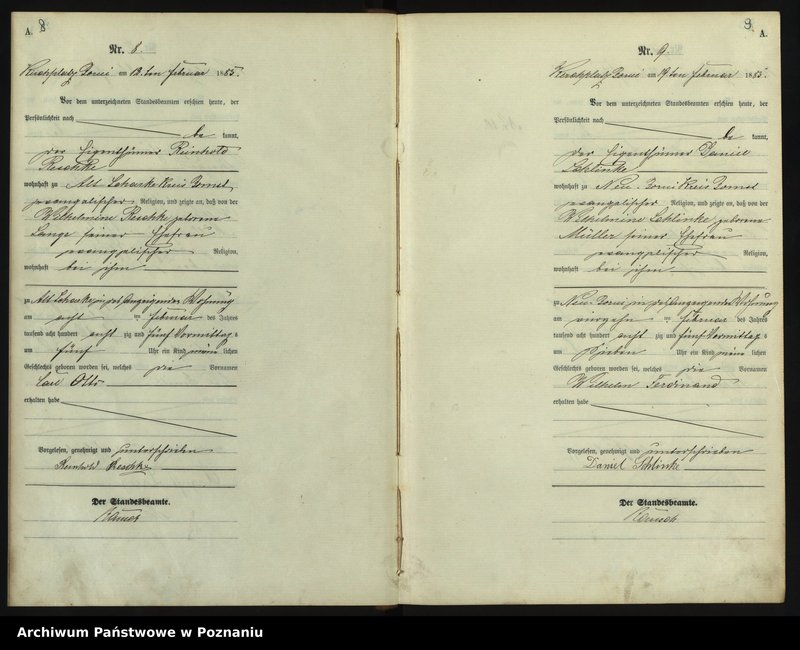 A. 8
Nr. 8.
am 12. ten Februar 1885.
Vor dem unterzeichneten Standesbeamten erschien heute, der
Persönlichkeit nach
be kannt,
der Eigenthümer Reinhold
Reschke
wohnhaft zu Alt Kreis Bomst
evangelischer Religion, und zeigte an, daß von der
Wilhelmine Reschke geborene
Lange seiner Ehefrau
evangelischer Religion,
wohnhaft bei ihm
zu Alt in des Anzeigenden Wohnung
am acht ten Februar des Jahres
tausend acht hundert acht zig und fünf Vormittag s
um fünf Uhr ein Kind männ lichen
Geschlechts geboren worden sei, welches die Vornamen
Carl Otto
erhalten habe
Vorgelesen, genehmigt und unterschrieben
Reinhold Reschke
Der Standesbeamte.
9.
A.
Nr. 9.
am 19 ten Februar 1885.
Vor dem unterzeichneten Standesbeamten erschien heute, der
Persönlichkeit nach
be kannt,
der Eigenthümer Daniel
Schlinke
wohnhaft zu Neu Kreis Bomst
evangelischer Religion, und zeigte an, daß von der
Wilhelmine Schlinke geborene
Müller seiner Ehefrau
evangelischer Religion,
wohnhaft bei ihm
zu Neu in des Anzeigenden Wohnung
am vierzehn ten Februar des Jahres
tausend acht hundert acht zig und fünf Vormittag s
um sieben Uhr ein Kind männ lichen
Geschlechts geboren worden sei, welches die Vornamen
Wilhelm Ferdinand
erhalten habe
Vorgelesen, genehmigt und unterschrieben
Daniel Schlinke
Der Standesbeamte.
Archiwum Państwowe w Poznaniu